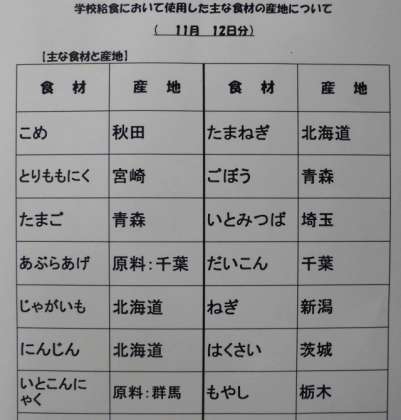 学校給食において使用した主な食材の産地について
( 11月 12日分)
【主な食材と産地】
食 材 産 地 食 材 産 地
こめ 秋田 たまねぎ 北海道
とりももにく 宮崎 ごぼう 青森
たまご 青森 いとみつば 埼玉
あぶらあげ 原料:千葉 だいこん 千葉
じゃがいも 北海道 ねぎ 新潟
にんじん 北海道 はくさい 茨城
いとこんに
ゃく 原料:群馬 もやし 栃木